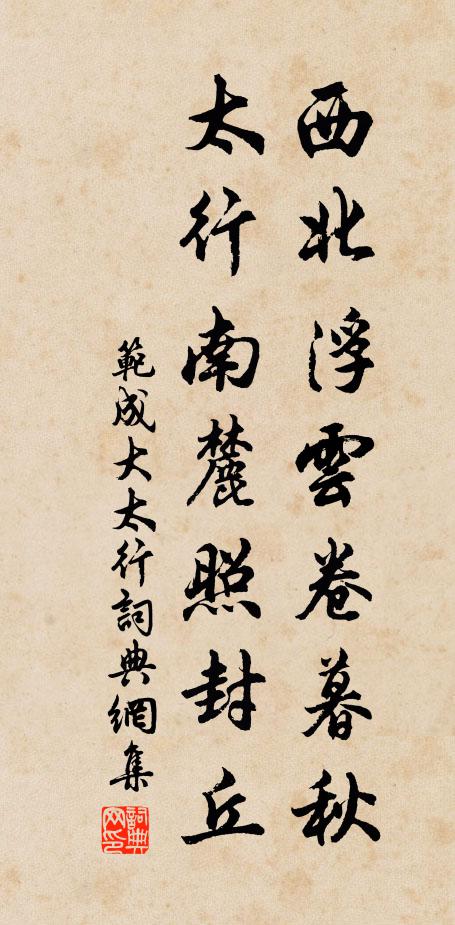 西北浮雲卷暮秋
太行南麓照封丘
範成大太行詞典網集
詞典網印